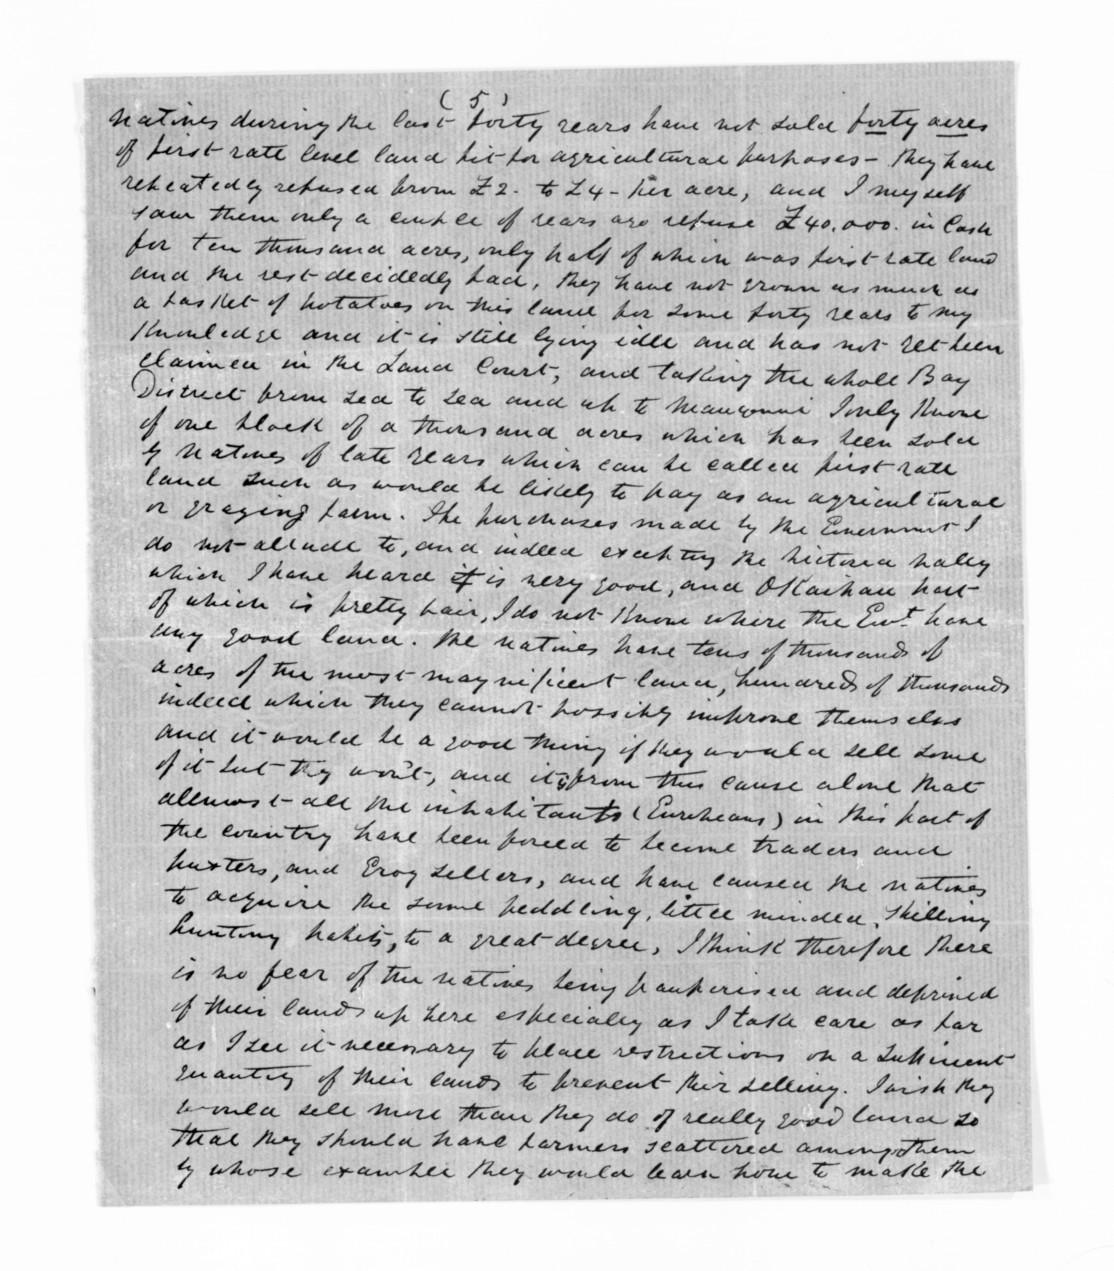 (5)
natives during the last forty years have not sold forty acres
of first rate level land fit for agricultural purposes - they have
repeatedly refused from £2. to £4 - per acre, and I myself
saw them only a couple of years ago refuse £40,000. in cash
for ten thousand acres, only half of which was first rate land
and the rest decidedly bad, they have not grown as much as
a basket of potatoes on this land for some forty years to my
knowledge and it is still lying idle and has not yet been
claimed in the Land Court, and taking the whole Bay
District from sea to sea and up to Maungonui I only know
of one block of a thousand acres which has been sold
by natives of late years which can be called first rate
land such as would be likely to pay as an agricultural
or grazing farm. The purchases made by the Government I
do not allude to, and indeed excepting the Victoria Valley
which I have heard is very good, and Okaihau part
of which is pretty fair, I do not know where the Govt. have
any good land. The natives have tens of thousands of
acres of the most magnificent land, hundreds of thousands
indeed which they cannot possibly improve themselves
and it would be a good thing if they would sell some
of it but they won't, and it is from this cause alone that
allmost all the inhabitants (Europeans) in this part of
the country have been forced to become traders and
huxters, and Grog sellers, and have caused the natives
to acquire the same peddling, little minded, shilling
hunting habits, to a great degree, I think therefore there
is no fear of the natives being pauperised and deprived
of their lands up here especially as I take care as far
as I see it necessary to place restrictions on a sufficient
quantity of their lands to prevent their selling. I wish they
would sell more than they do of really good land so
that they should have farmers scattered among them
by whose example they would learn how to make the